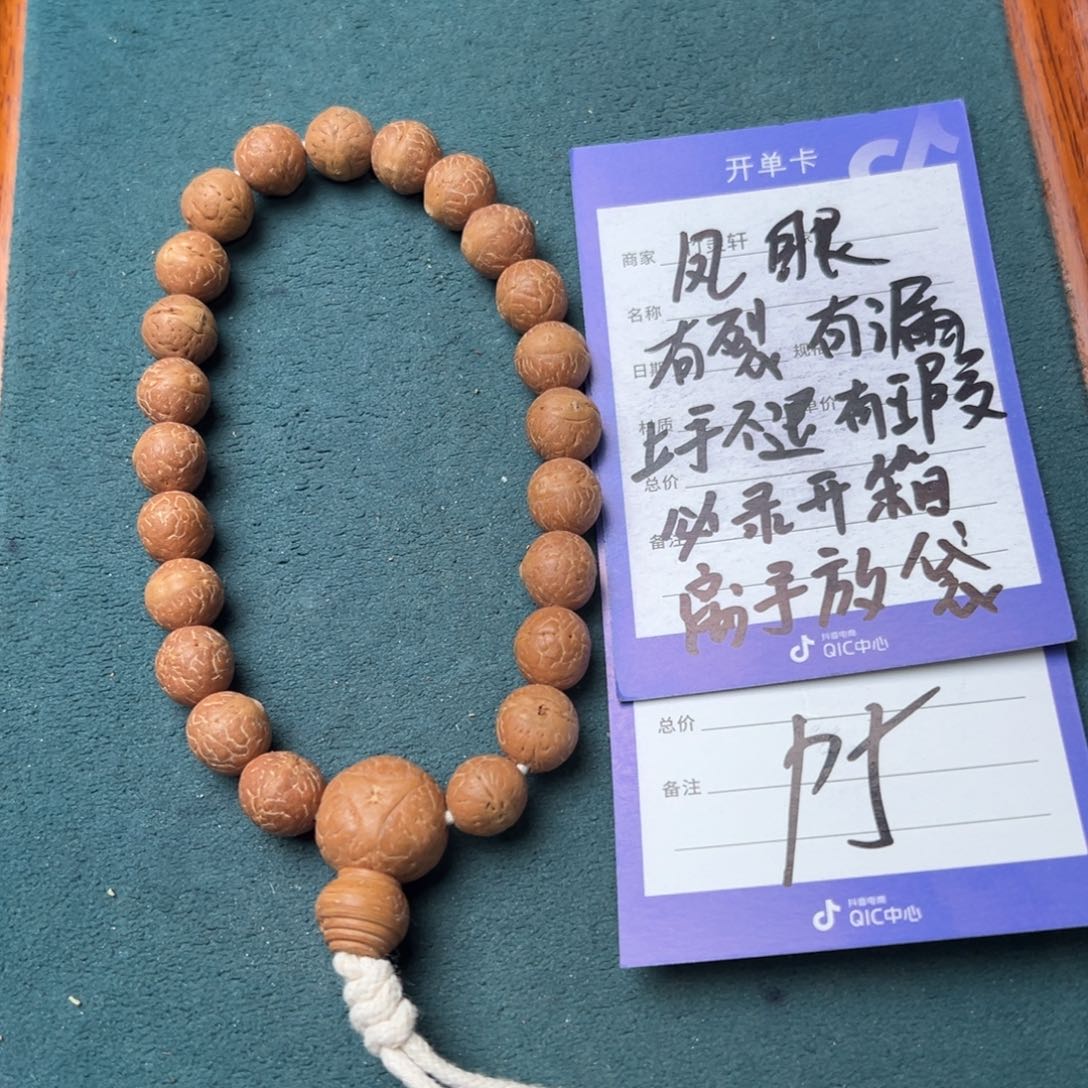 开单卡
商家
凤眼
轩
名称
有裂 有漏
日期
规格
上手不退 有瑕
材质
单价
总价
必录开箱
备注
离手放袋
抖音电商
QIC中心
总价
备注
竹
抖音电商
QIC中心